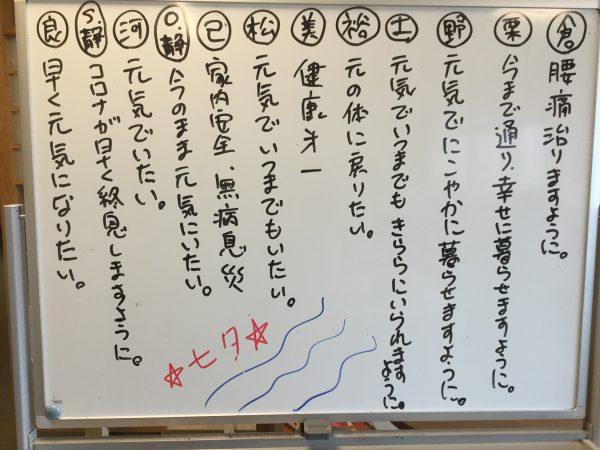 倉 腰痛治りますように。
栗 今まで通り、幸せに暮らせますように。
野 元気でにこやかに暮らせますように。
土 元気でいつまでもきららにいられます
ように。
裕 元の体に戻りたい。
美 健康才一
松 元気でいつまでもいたい。
己 家内安全、無病息災
O.静 今のまま元気にいたい。
河 元気でいたい。
S.静 コロナが早く終息しますように。
良 早く元気になりたい。
☆七夕☆